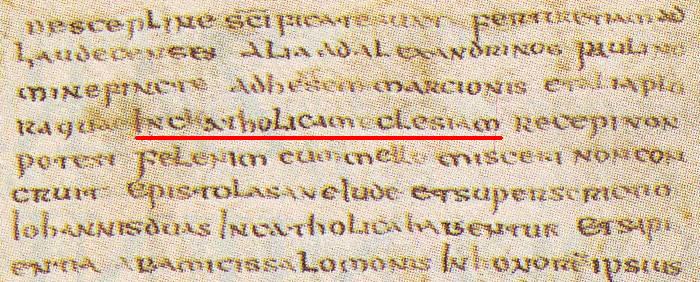 descepline scificate sunt fertur etiam ad
Laudecenses alia ad alexandrinos pauli no
mine fincte ad hesem marcionis et alia plu
ra quae In chatholicam eclesiam recepi non
potest fel enim cum melle misceri non con
cruit epistola sane iude et superscrictio
Iohannis duas In catholica habentur et sapi
entia ab amicis salomonis In honore ipsius